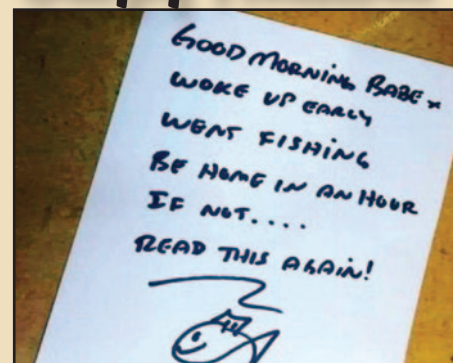 GOOD MORNING BABE x
WOKE UP EARLY
WENT FISHING
BE HOME IN AN HOUR
IF NOT....
READ THIS AGAIN!